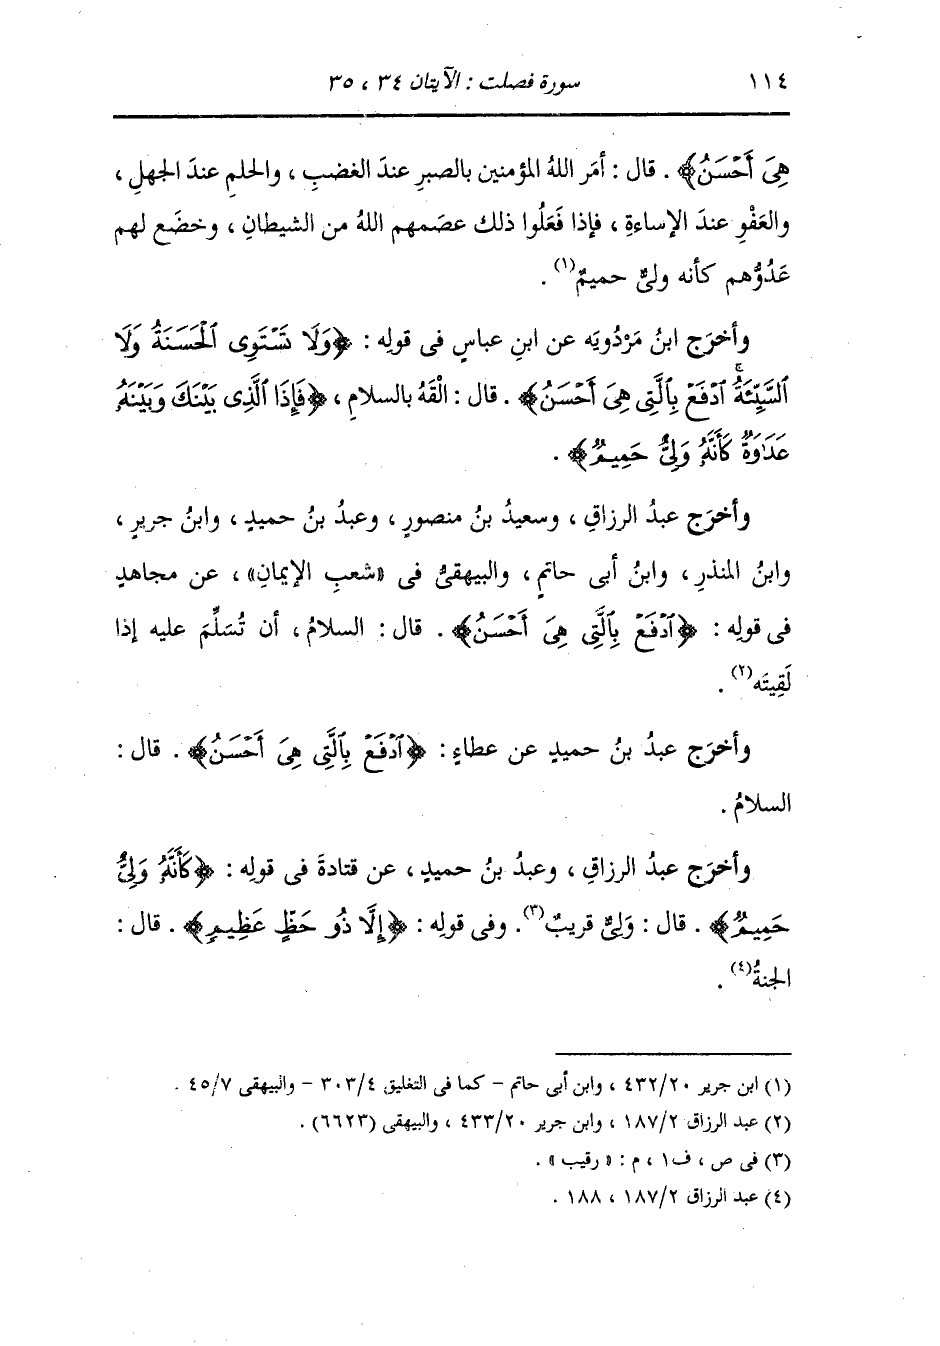 ١١٤ سورة فصلت : الآيتان ٣٤ ، ٣٥
هِىَ أَحْسَنُ﴾ . قال : أمَر اللهُ المؤمنين بالصبرِ عندَ الغضبِ ، والحلمِ عندَ الجهلِ ،
والعَفْوِ عندَ الإساءةِ ، فإذا فَعَلُوا ذلك عصَمهم اللهُ من الشيطانِ ، وخضَع لهم
عَدُوُّهم كأنه ولىٌّ حميمٌ(١) .
وأخرَج ابنُ مَرْدُويَه عن ابنِ عباسٍ فى قولِه : ﴿وَلَا تَسْتَوِى ٱلْحَسَنَةُ وَلَا
ٱلسَّيِّئَةُ ۚ ٱدْفَعْ بِٱلَّتِى هِىَ أَحْسَنُ﴾ . قال : الْقَهُ بالسلامِ ، ﴿فَإِذَا ٱلَّذِى بَيْنَكَ وَبَيْنَهُۥ
عَدَٰوَةٌ كَأَنَّهُۥ وَلِىٌّ حَمِيمٌ﴾ .
وأخرَج عبدُ الرزاقِ ، وسعيدُ بنُ منصورٍ ، وعبدُ بنُ حميدٍ ، وابنُ جريرٍ ،
وابنُ المنذرِ ، وابنُ أبى حاتمٍ ، والبيهقىُّ فى «شعبِ الإيمانِ» ، عن مجاهدٍ
فى قولِه : ﴿ٱدْفَعْ بِٱلَّتِى هِىَ أَحْسَنُ﴾ . قال : السلامُ ، أن تُسَلِّمَ عليه إذا
لَقِيتَه(٢) .
وأخرَج عبدُ بنُ حميدٍ عن عطاءٍ : ﴿ٱدْفَعْ بِٱلَّتِى هِىَ أَحْسَنُ﴾ . قال :
السلامُ .
وأخرَج عبدُ الرزاقِ ، وعبدُ بنُ حميدٍ ، عن قتادةَ فى قولِه : ﴿كَأَنَّهُۥ وَلِىٌّ
حَمِيمٌ﴾ . قال : وَلِىٌّ قريبٌ(٣) . وفى قولِه : ﴿إِلَّا ذُو حَظٍّ عَظِيمٍ﴾ . قال :
الجنةُ(٤) .
(١) ابن جرير ٤٣٢/٢٠ ، وابن أبى حاتم - كما فى التغليق ٣٠٣/٤ - والبيهقى ٤٥/٧ .
(٢) عبد الرزاق ١٨٧/٢ ، وابن جرير ٤٣٣/٢٠ ، والبيهقى (٦٦٢٣) .
(٣) فى ص ، ف١ ، م : « رقيب » .
(٤) عبد الرزاق ١٨٧/٢ ، ١٨٨ .